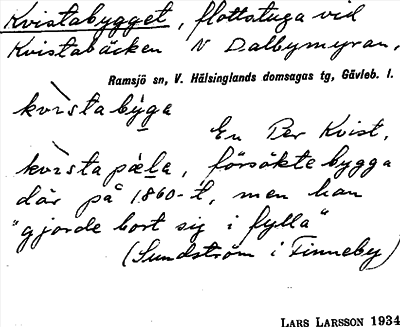 Kvistabygget, flottstuga vid
Kvistabäcken N Dalbymyran,
Ramsjö sn, V. Hälsinglands domsagas tg, Gävleb. l.
kvìstabỳga
En Per Kvist,
kvìstapæla, försökte bygga
där på 1860-t, men han
"gjorde bort sig i fylla"
(Sundström i Finneby)
LARS LARSSON 1934